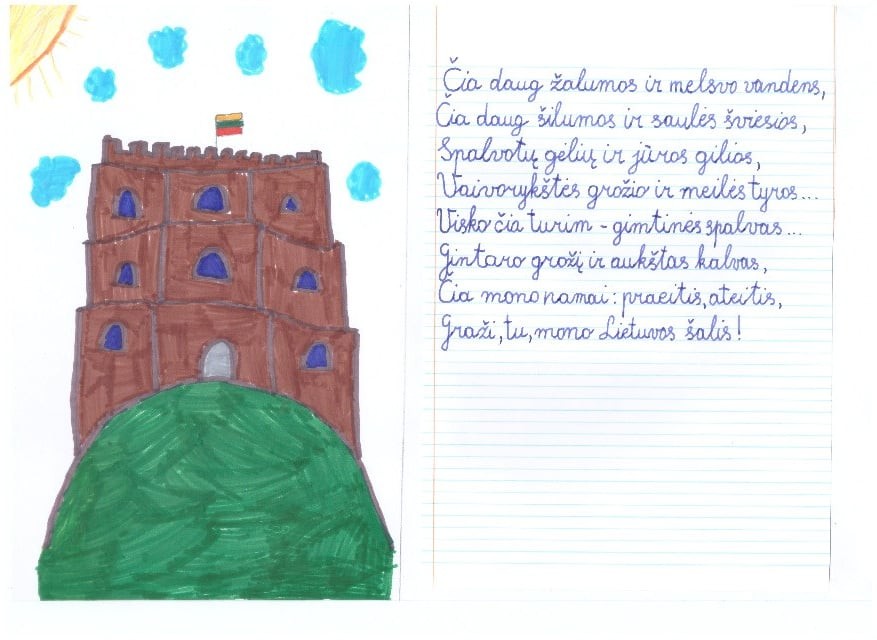 Čia daug žalumos ir melsvo vandens,
Čia daug šilumos ir saulės šviesios,
Spalvotų gėlių ir jūros gilios,
Vaivorykštės grožio ir meilės tyros...
Visko čia turim - gimtinės spalvas...
Gintaro grožį ir aukštas kalvas,
Čia mano namai: praeitis, ateitis,
Graži, tu, mano Lietuvos šalis!